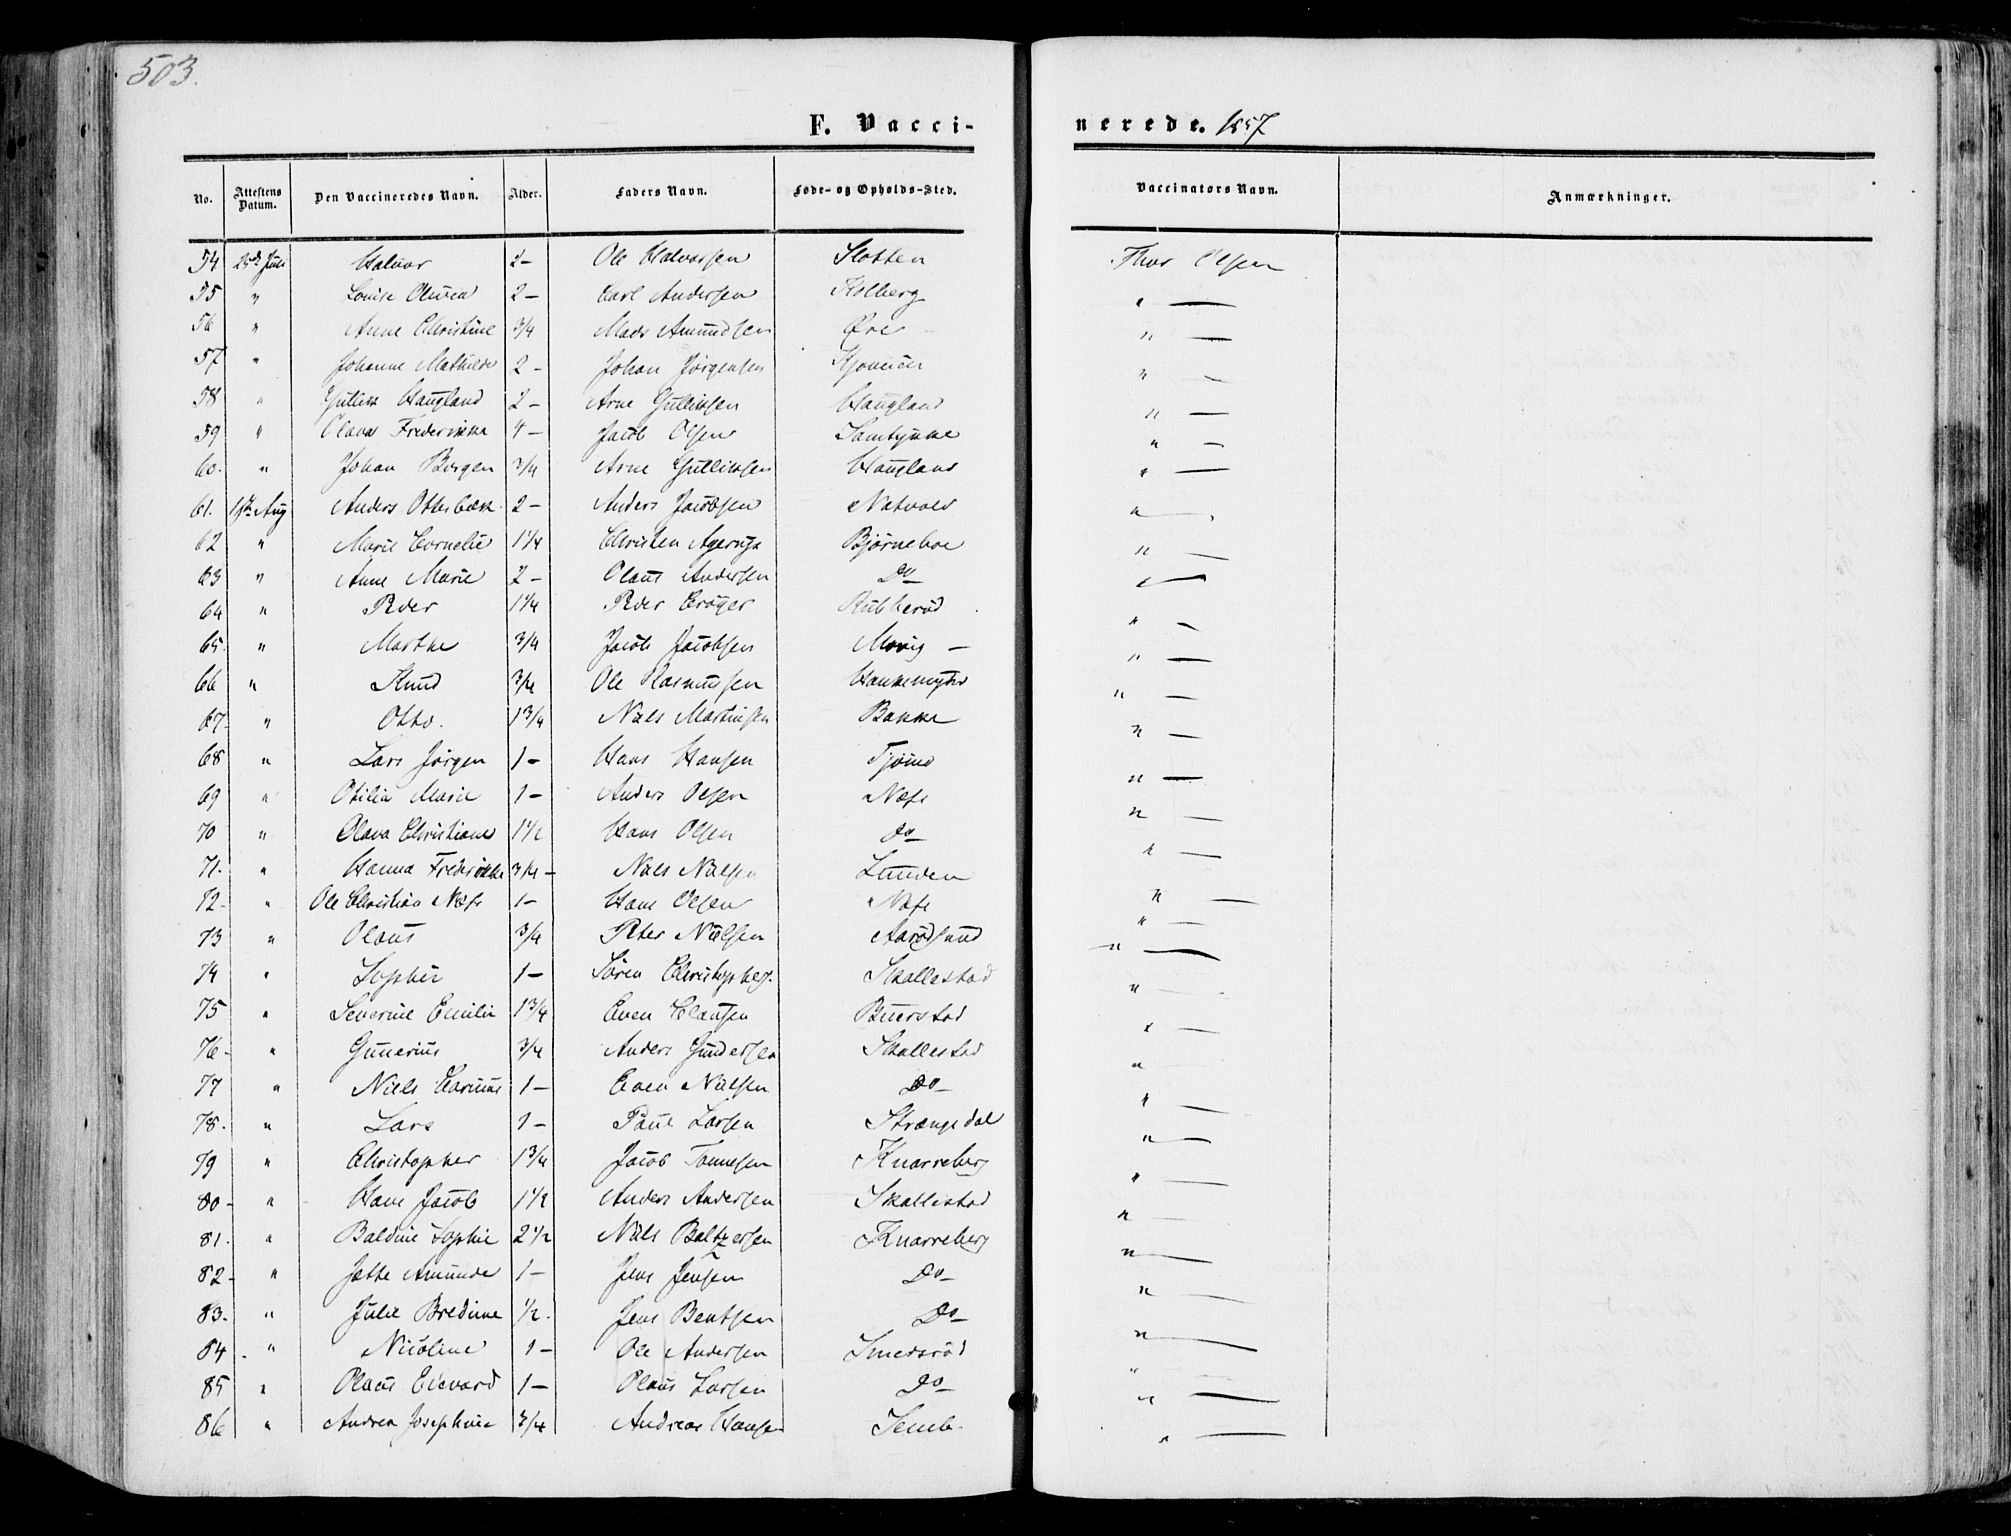 503.
F. Vacci- nerede. 1857
No. Attestens Datum. Den Vaccineredes Navn. Alder. Faders Navn. Føde- og Opholds-Sted. Vaccinators Navn. Anmærkninger.
54 Halvor 2- Ole Halvorsen Slotten Thor Olsen
55 " Louise Olivea 2- Carl Andersen Holberg " —
56 " Anne Christine 3/4 Mads Amundsen Øre " —
57 " Johanne Mathilde 2- Johan Jørgensen " —
58 " Haugland 2- Arne Gulliksen Haugland " —
59 " Olava Frederikke 4- Jacob Olsen " —
60. " Johan Borgen 3/4 Arne Gulliksen Haugland " —
61. Aug Anders Otterbæk 2- Anders Jacobsen Natvold " —
62 " Marie Cornelie 1 1/4 Christen Bjørneboe " —
63 " Anne Marie 2- Olaus Andersen Do " —
64 " Peder 1 1/4 Peder Crøger " —
65. " Marthe 3/4 Jacob Jacobsen — " —
66 " Knud 3/4 Ole Rasmussen " —
67- " Otto. 1 3/4 Niels Martinsen Bakke " —
68 " Lars Jørgen 1- Hans Hansen Tjømø " —
69 " Otilia Marie 1- Anders Olsen Næs " —
70 " Olava Christiane 1 1/2 Hans Olsen do " —
71. " Hanna Frederikke 3/4- Niels Nielsen Lunden " —
72- " Ole Christian Næs 1- Hans Olsen Næs " —
73 " Olaus 3/4 Peter Nielsen Aarødsund " —
74 " Sophie 1- Søren Christophers. Skallestad " —
75 " Severine Emilie 1 3/4 Even Clausen Buerstad " —
76- " Gunerius 3/4 Anders Gundersen Skallestad " —
77 " Niels Carinus 1- Even Nielsen Do " —
78. " Lars 1- Paul Larsen Strængsdal " —
79 " Christopher 1 3/4 Jacob Tønnesen Knarreberg " —
80- " Hans Jacob 1 1/2 Anders Andersen Skallestad " —
81. " Baldine Sophie 2 1/2 Niels Baltzersen Knarreberg " —
82- " Jette Amunda 1- Jens Jensen Do " —
83. " Julie Bredine 1/2. Jens Bentsen Do " —
84. " Nicoline 1- Ole Andersen Smedsrød " —
85 " Olaus Edevard 1- Olaus Larsen Do " —
86 " Andrea Josephine 3/4 Andreas Hansen Semb. " —